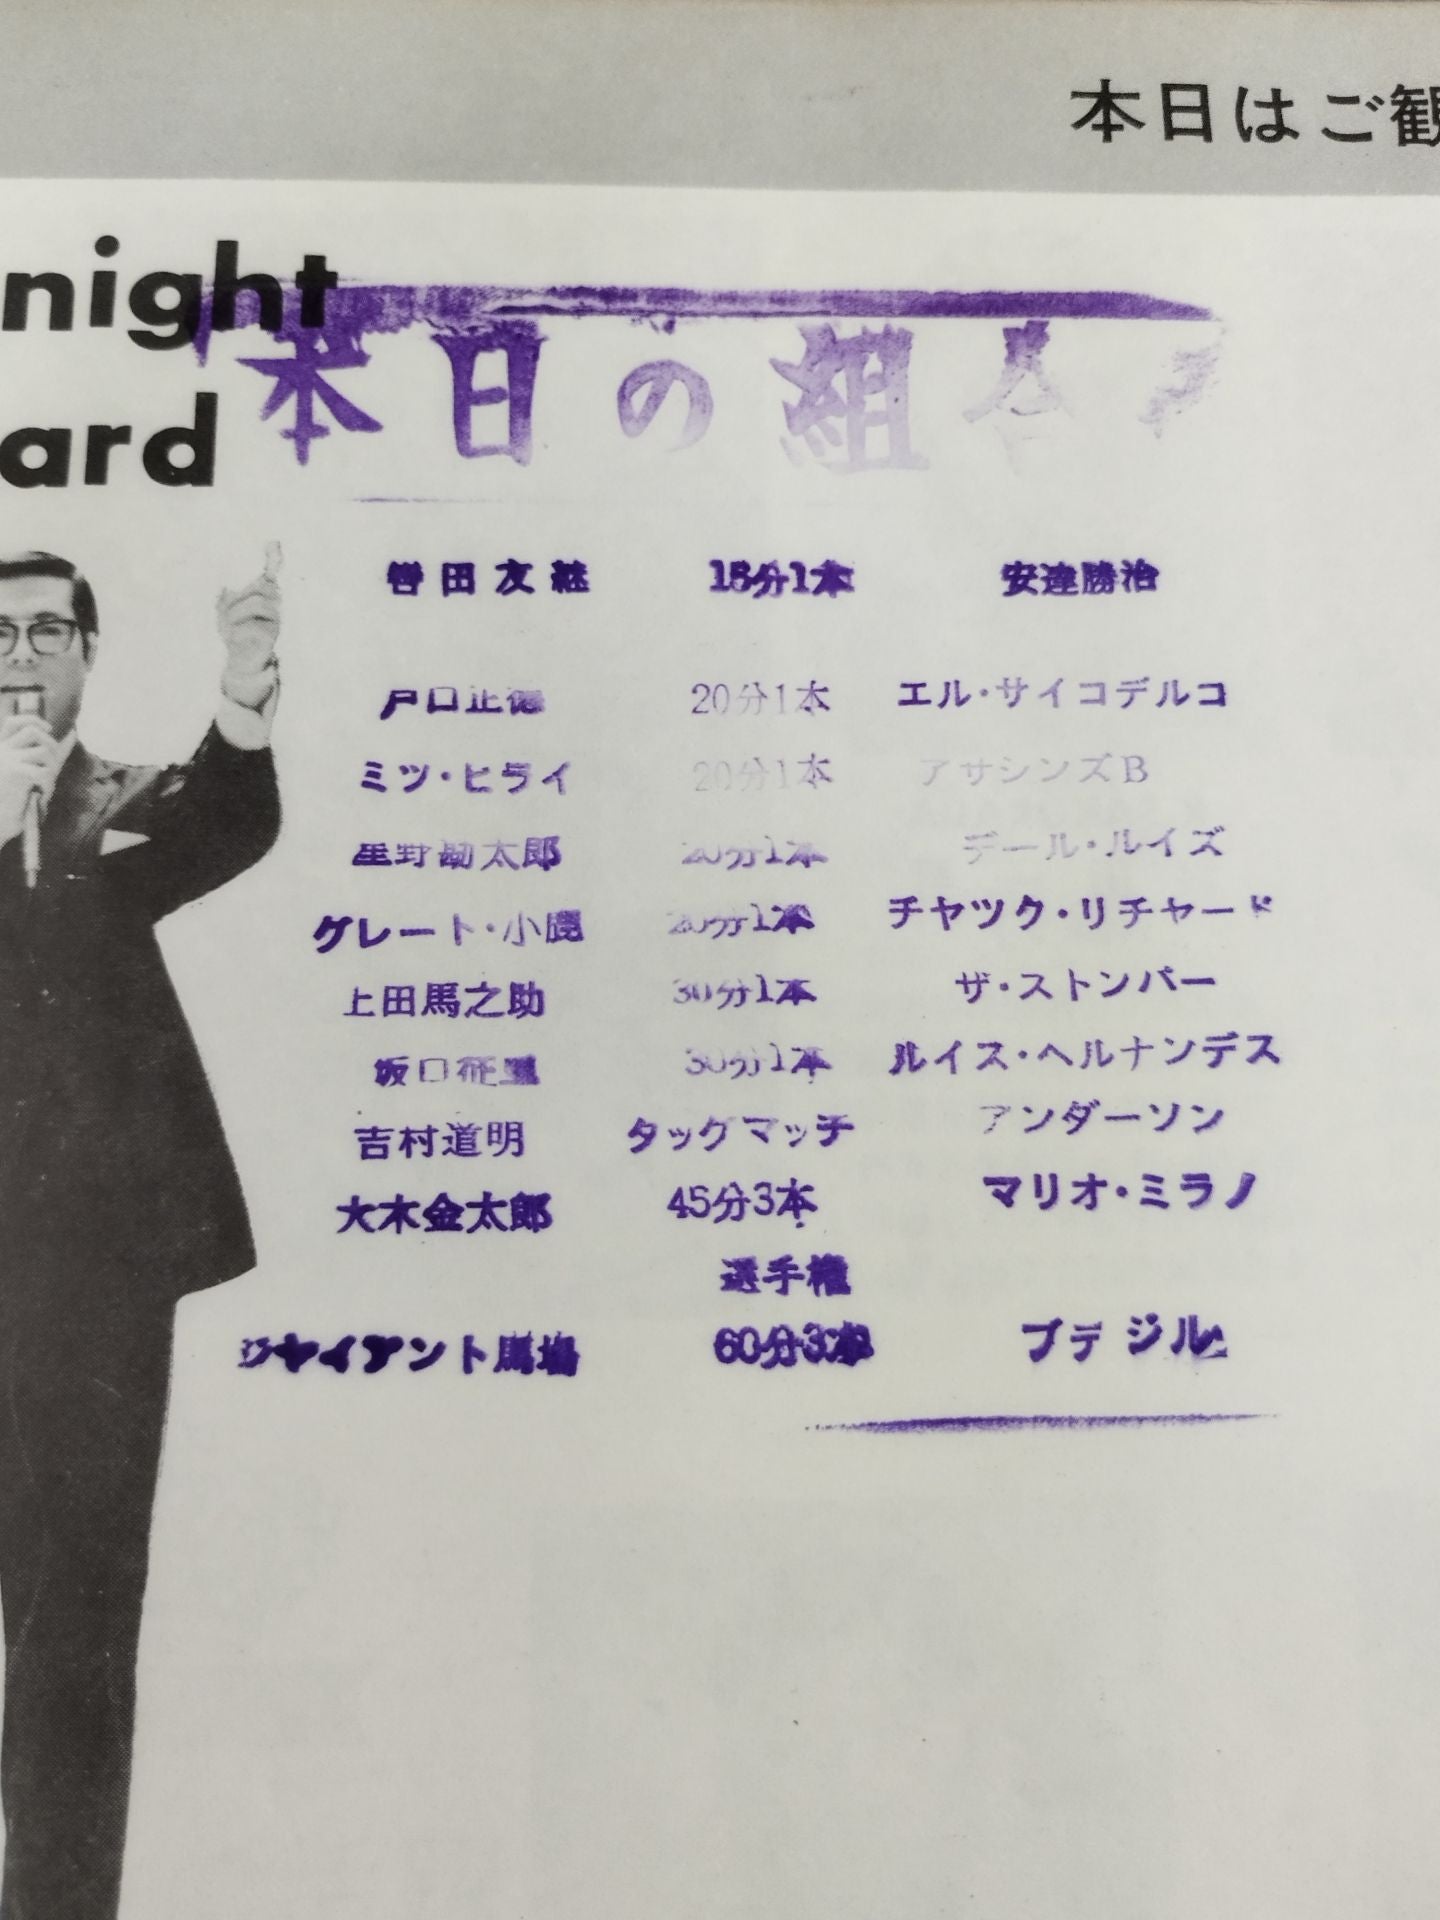 本日はご観
night
ard
本日の組合
轡田友継 15分1本 安達勝治
戸口正徳 20分1本 エル・サイコデルコ
ミツ・ヒライ 20分1本 アサシンズB
星野勘太郎 20分1本 デール・ルイズ
グレート・小鹿 20分1本 チヤツク・リチヤード
上田馬之助 30分1本 ザ・ストンパー
坂口征二 30分1本 ルイス・ヘルナンデス
吉村道明 タッグマッチ アンダーソン
大木金太郎 45分3本 マリオ・ミラノ
選手権
ジヤイアント馬場 60分3本 ブテジル